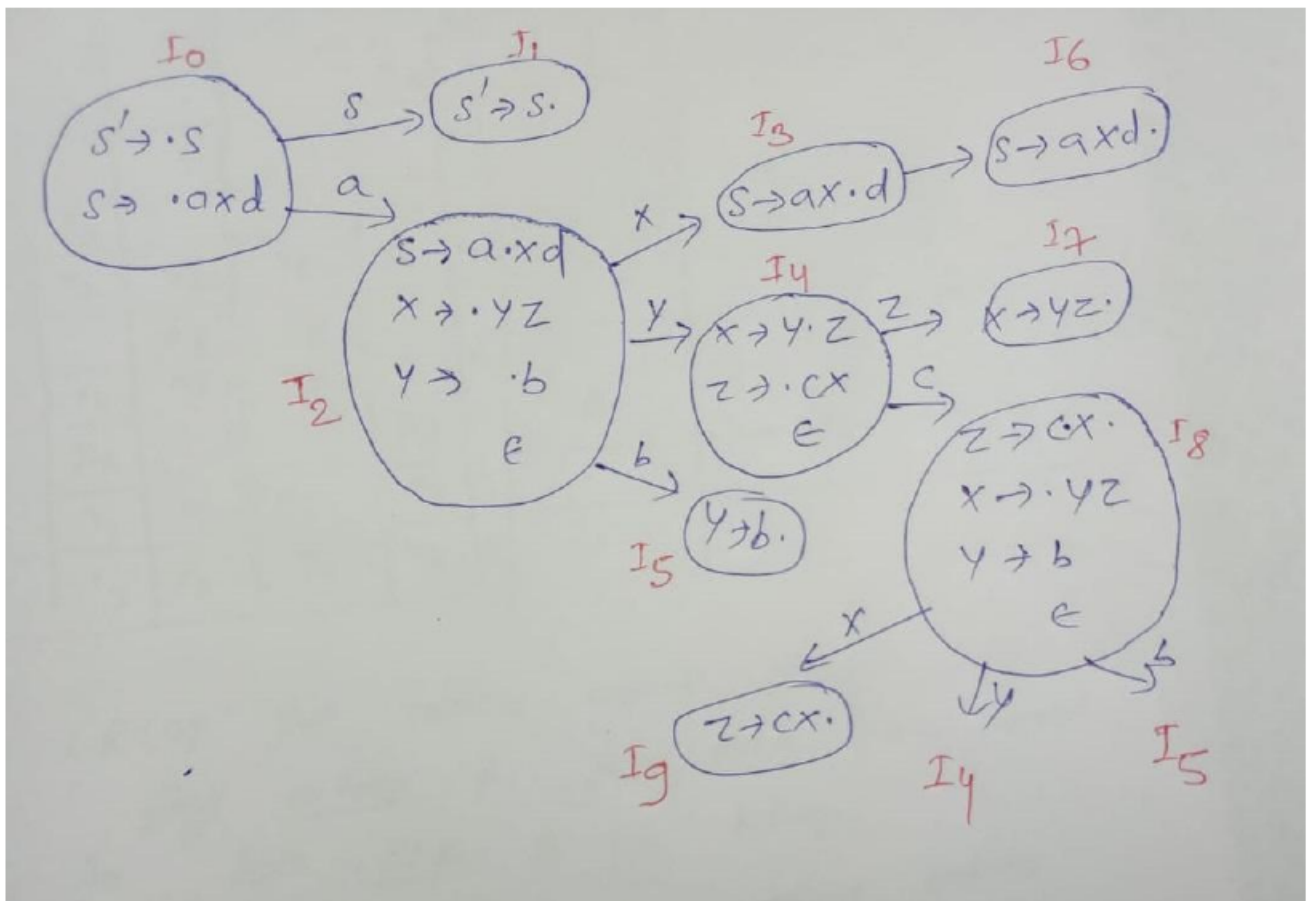 I0
S' → ·S
S → ·aXd
S
I1
S' → S·
a
I2
S → a·Xd
X → ·YZ
Y → ·b
ϵ
X
I3
S → aX·d
I6
S → aXd·
Y
I4
X → Y·Z
Z → ·cX
ϵ
Z
I7
X → YZ·
c
b
I5
Y → b·
I8
Z → c·X·
X → ·YZ
Y → b
ϵ
X
I9
Z → cX·
Y
I4
b
I5